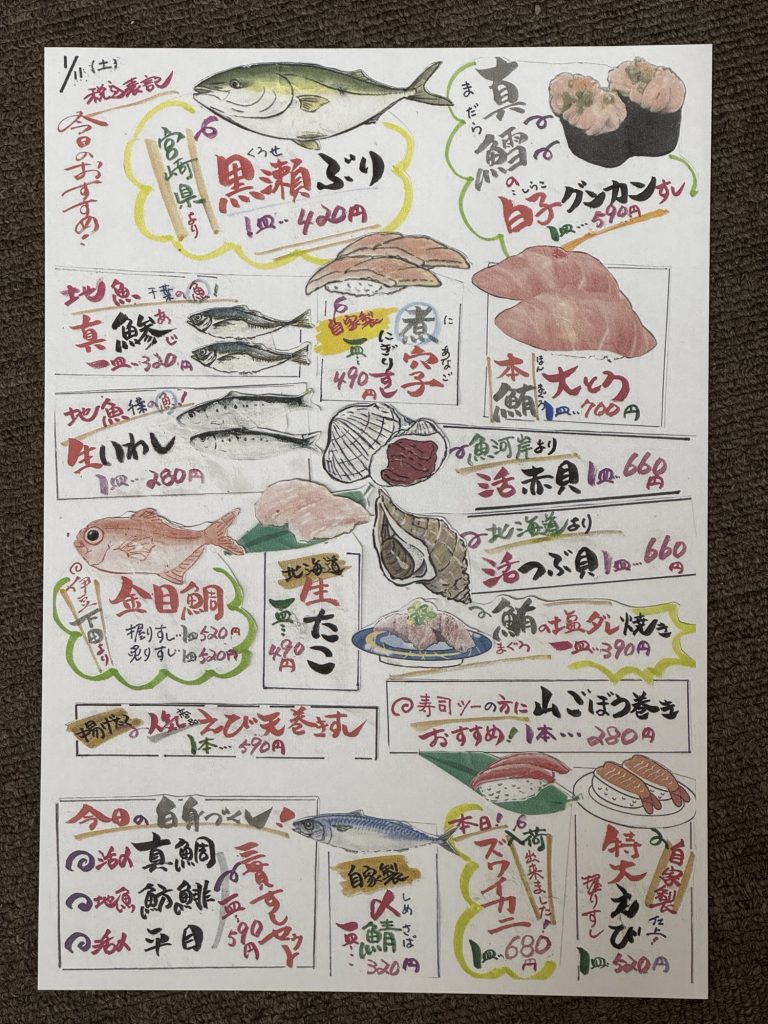 1/11(土)
税込表記
今日のおすすめ!
宮崎県より
くろせ
黒瀬ぶり
1皿‥420円
まだら
真鱈の
しらこ
白子グンカンすし
1皿‥590円
地魚 千葉の魚!
真鯵
あじ
一皿‥320円
自家製
煮穴子
に あなご
にぎりすし
一皿‥490円
ほん まぐろ
本鮪 大とろ
1皿‥700円
地魚
生いわし
1皿‥280円
魚河岸より
活赤貝 1皿‥660円
北海道より
活つぶ貝 1皿‥660円
伊豆下田より
金目鯛
握りすし‥1皿520円
炙りすし‥1皿520円
北海道
生たこ
一皿‥490円
鮪の塩ダレ焼き
まぐろ
一皿‥390円
揚げたて
人気商品
えび天巻きすし
1本‥590円
寿司ツーの方に 山ごぼう巻き
おすすめ! 1本‥280円
今日の白身づくし!
活〆 真鯛
地魚 魴鮄
活〆 平目
三貫すしセット
一皿‥590円
自家製
〆鯖
しめ さば
一皿‥320円
本日!
入荷出来ました!
ズワイカニ
1皿‥680円
自家製仕上!
特大えび
握りすし
1皿‥520円